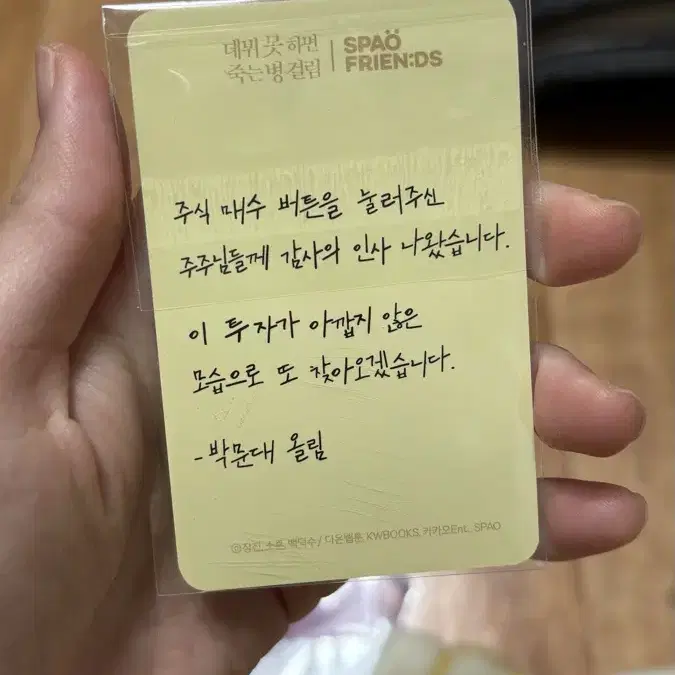 데뷔 못 하면
죽는 병 걸림
SPAO
FRIEN:DS
주식 매수 버튼을 눌러주신
주주님들께 감사의 인사 나왔습니다.
이 투자가 아깝지 않은
모습으로 또 찾아오겠습니다.
-박문대 올림
KWBOOKS, 카카오Ent., SPAO